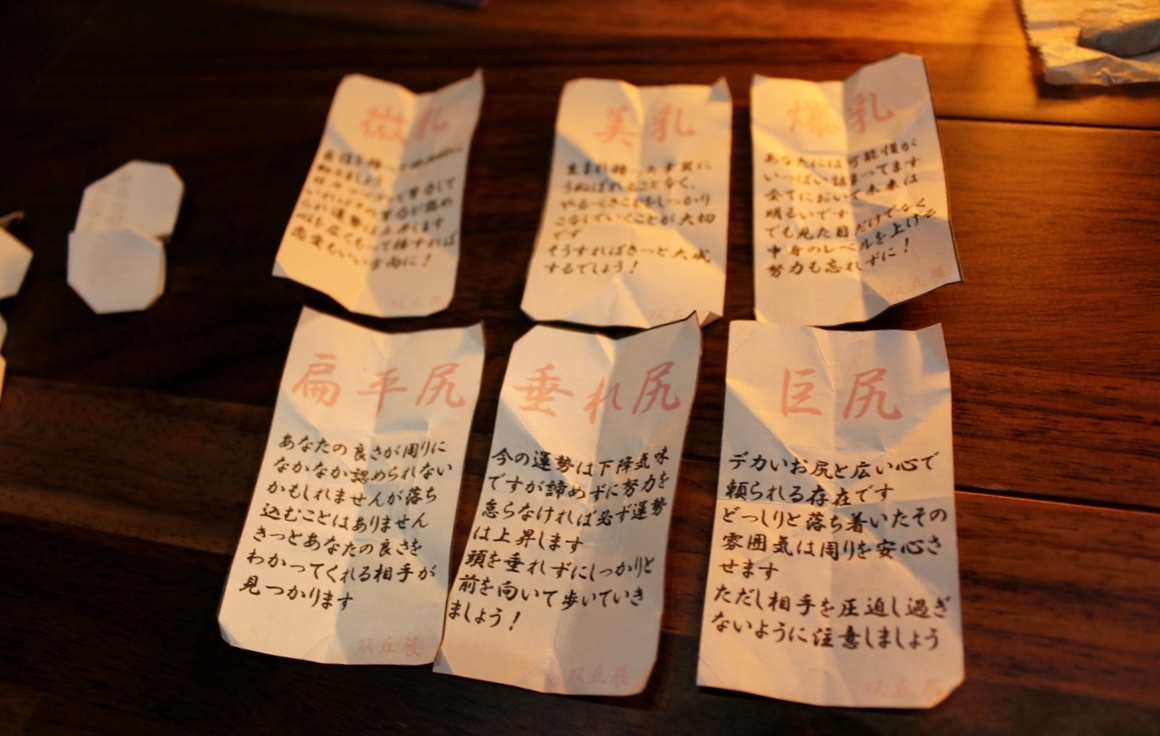 微乳
って努力して
運勢は上昇します
心を広くもって接すれば
恋愛もいい方向に！
美乳
生まれ持った才質に
うぬぼれることなく、
やるべきことをしっかり
こなしていくことが大切
です
そうすればきっと大成
するでしょう！
爆乳
あなたには可能性が
いっぱい詰まってます
全てにおいて未来は
明るいです
でも見た目だけでなく
中身のレベルを上げる
努力も忘れずに！
双丘展
扁平尻
あなたの良さが周りに
なかなか認められない
かもしれませんが落ち
込むことはありません
きっとあなたの良さを
わかってくれる相手が
見つかります
双丘展
垂れ尻
今の運勢は下降気味
ですが諦めずに努力を
怠らなければ必ず運勢
は上昇します
頭を垂れずにしっかりと
前を向いて歩いていき
ましょう！
双丘展
巨尻
デカいお尻と広い心で
頼られる存在です
どっしりと落ち着いたその
雰囲気は周りを安心さ
せます
ただし相手を圧迫し過ぎ
ないように注意しましょう
双丘展